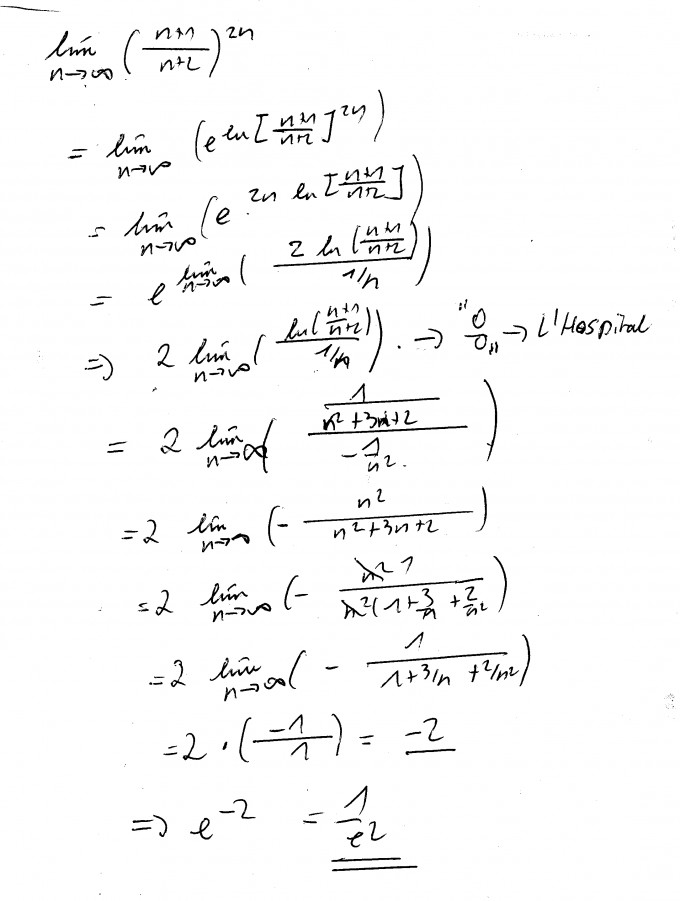 lim n→∞ ((n+1)/(n+2))^2n
= lim n→∞ (e^ln[(n+1)/(n+2)]^2n)
= lim n→∞ (e^2n ln[(n+1)/(n+2)])
= e^lim n→∞ (2 ln((n+1)/(n+2)) / 1/n)
⇒ 2 lim n→∞ (ln((n+1)/(n+2)) / 1/n). → "0/0" → L'Hospital
= 2 lim n→∞ ((1/(n²+3n+2)) / (-1/n²))
= 2 lim n→∞ (- n²/(n²+3n+2))
= 2 lim n→∞ (- n² 1/(n²(1+3/n+2/n²)))
= 2 lim n→∞ (- 1/(1+3/n+2/n²))
= 2 · (-1/1) = -2
⇒ e^-2 = 1/e²